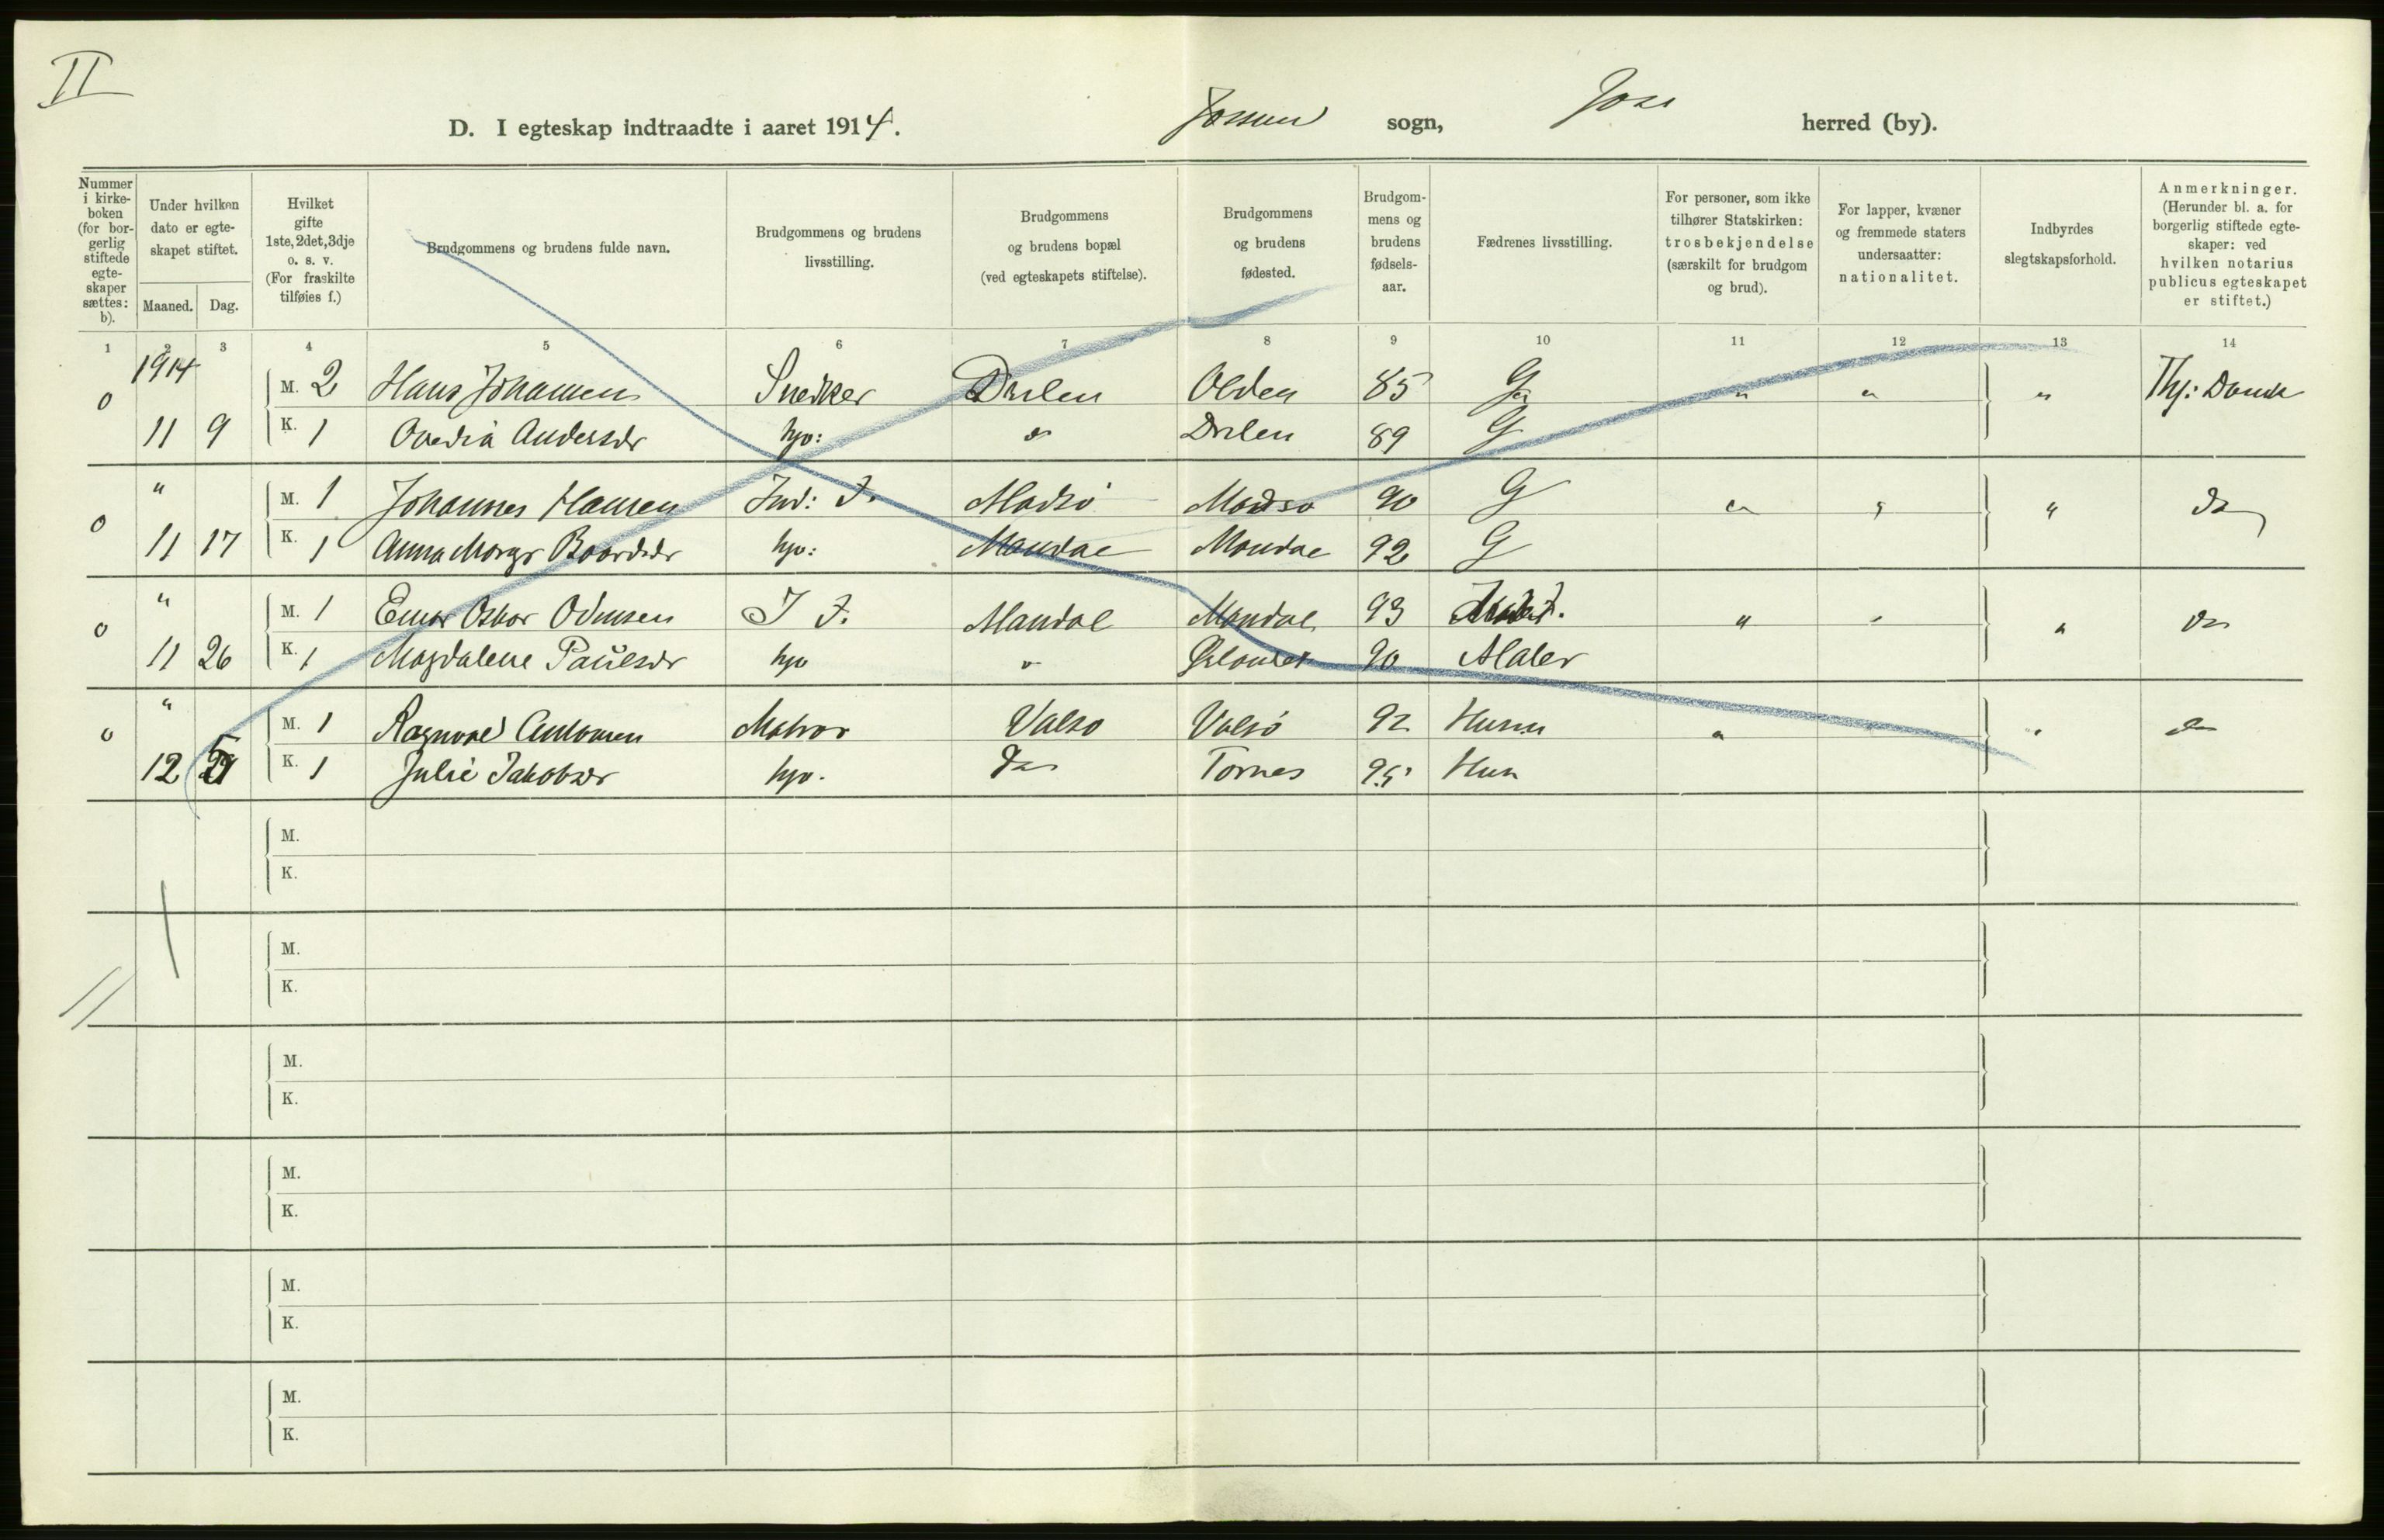 II
D. I egteskap indtraadte i aaret 1914. sogn, herred (by).
Nummer i kirkeboken (for borgerlig stiftede egteskaper sættes: b).
Under hvilken dato er egteskapet stiftet.
Maaned. Dag.
Hvilket gifte 1ste, 2det, 3dje o. s. v. (For fraskilte tilføies f.)
Brudgommens og brudens fulde navn.
Brudgommens og brudens livsstilling.
Brudgommens og brudens bopæl (ved egteskapets stiftelse).
Brudgommens og brudens fødested.
Brudgommens og brudens fødselsaar.
Fædrenes livsstilling.
For personer, som ikke tilhører Statskirken: trosbekjendelse (særskilt for brudgom og brud).
For lapper, kvæner og fremmede staters undersaatter: nationalitet.
Indbyrdes slegtskapsforhold.
Anmerkninger. (Herunder bl. a. for borgerlig stiftede egteskaper: ved hvilken notarius publicus egteskapet er stiftet.)
1 2 3 4 5 6 7 8 9 10 11 12 13 14
1914
0 M. 2 Hans Johansen Snedker Drilen Olden 85 G " " "
11 9 K. 1 Ovedia Andersdr hjv: " Drilen 89 G
0 " M. 1 Johannes Hansen Ind: F. Madsö Madsö 90 G " " " Do
11 17 K. 1 Anna Margr Baardsdr hjv: Mandal Mandal 92 G
0 " M. 1 Einar Oskar Odinsen I F. Mandal Mandal 93 " " " Do
11 26 K. 1 Magdalene Paulsdr hjv " 90 Maler
0 " M. 1 Ragnval Antonsen Matros Valsö Valsö 92 Husm " " Do
12 K. 1 Julie Jakobsdr hjv. Do Tornes 95 Husm
M.
K.
M.
K.
M.
K.
M.
K.
M.
K.
M.
K.